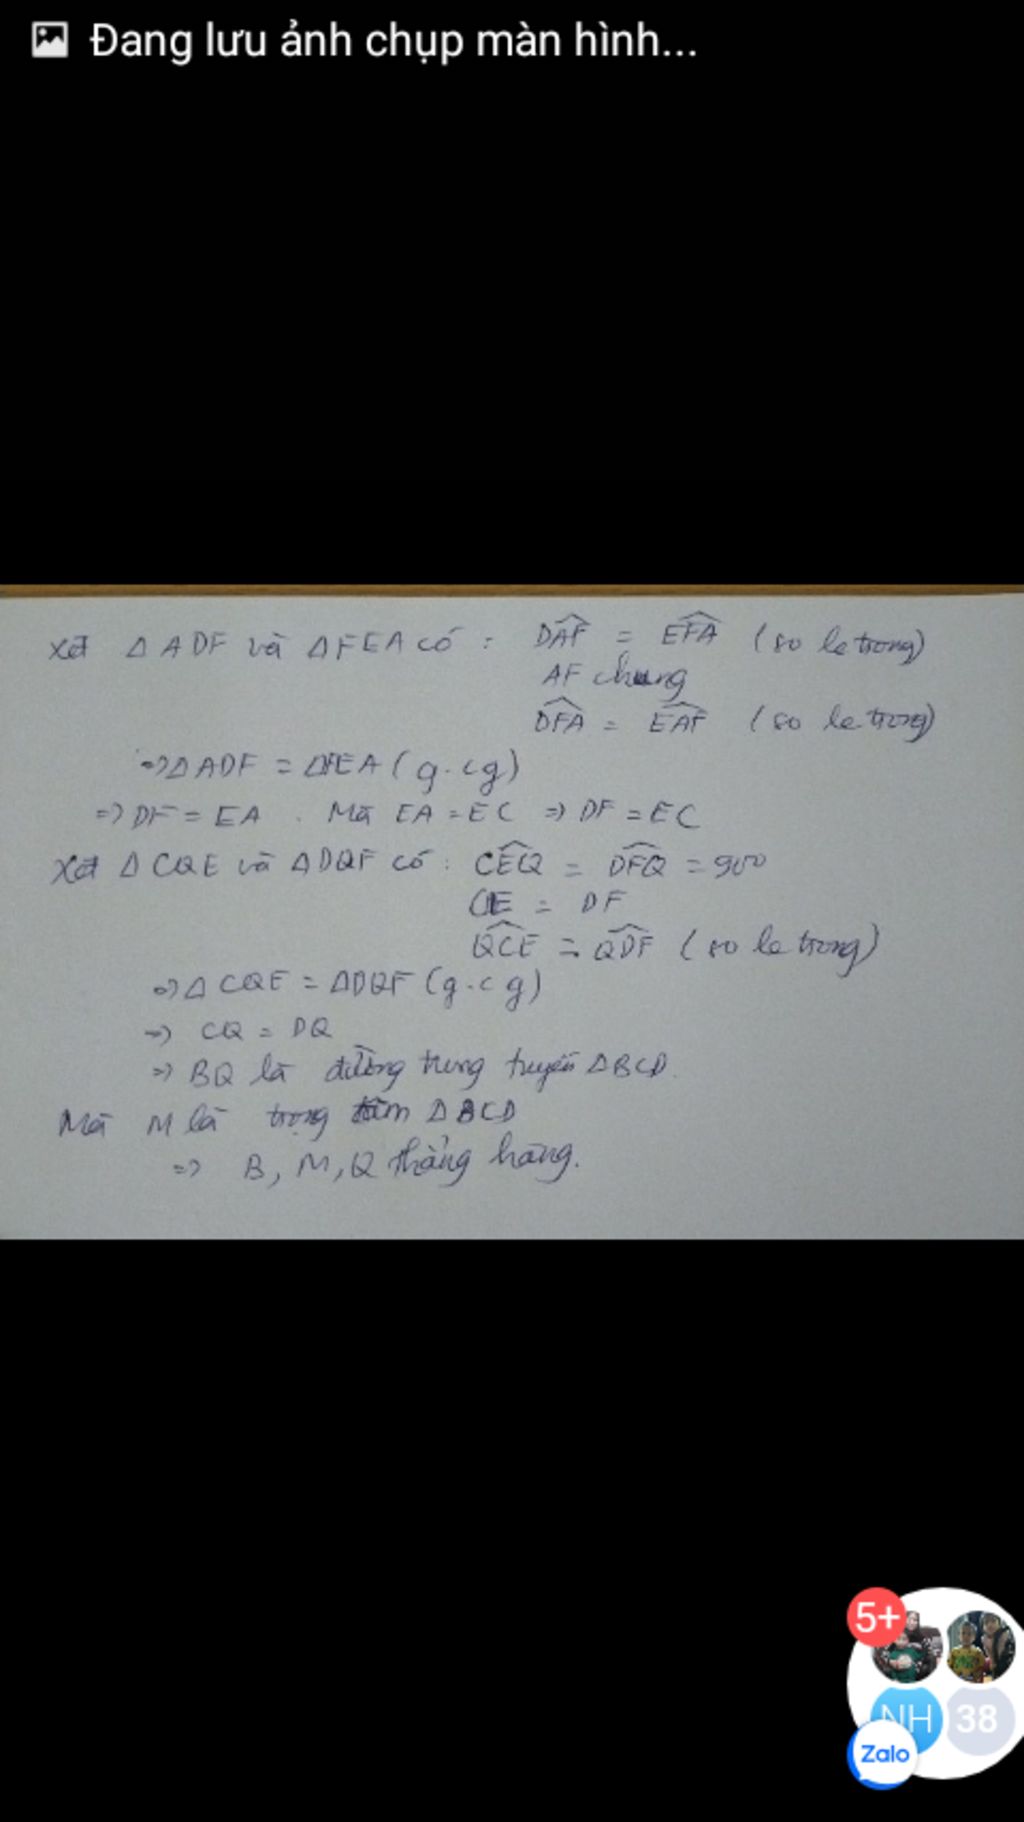 Đang lưu ảnh chụp màn hình...
Xét Δ ADF và ΔFEA có : DAF = EFA (so le trong)
AF chung
DFA = EAF (so le trong)
=> Δ ADF = ΔFEA ( g.cg)
=> DF = EA . Mà EA = EC => DF = EC
Xét Δ CQE và Δ DQF có : CEQ = DFQ = 90°
CE = DF
QCE = QDF (so le trong)
=> Δ CQE = ΔDQF (g.c g)
=> CQ = DQ
=> BQ là đường trung tuyến Δ BCD.
Mà M là trọng tâm Δ BCD
=> B, M, Q thẳng hàng.
5+
NH 38
Zalo